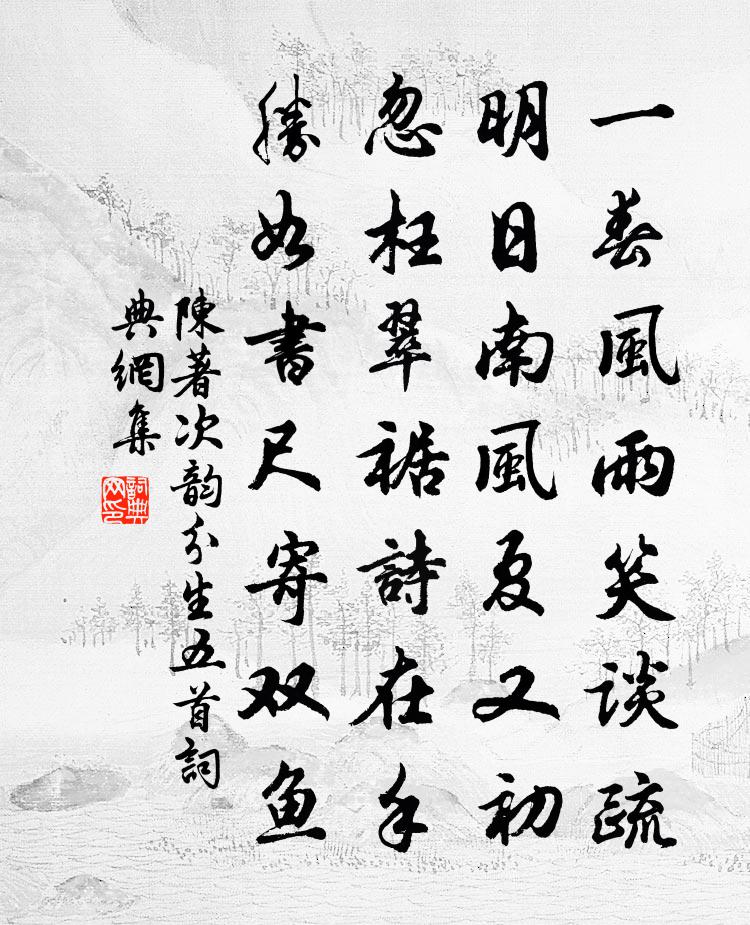 一春風雨笑談疏
明日南風夏又初
忽枉翠裾詩在手
勝如書尺寄双鱼
陳著次韵分生五首詞
典網集
詞典
网印